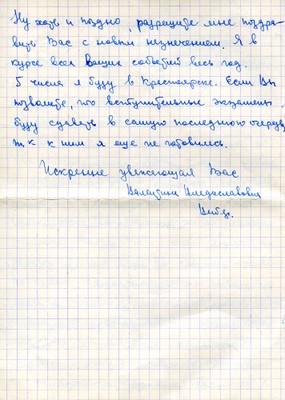 Ну хоть и поздно, разрешите мне поздра-
вить Вас с новым назначением. Я в
курсе всех Ваших событий весь год.
5 числа я буду в Красноярске. Если Вы
позволите, то вступительные экзамены
буду сдавать в самую последнюю очередь,
т к к ним я еще не готовилась.
Искренне уважающая Вас
Валентина Владиславовна